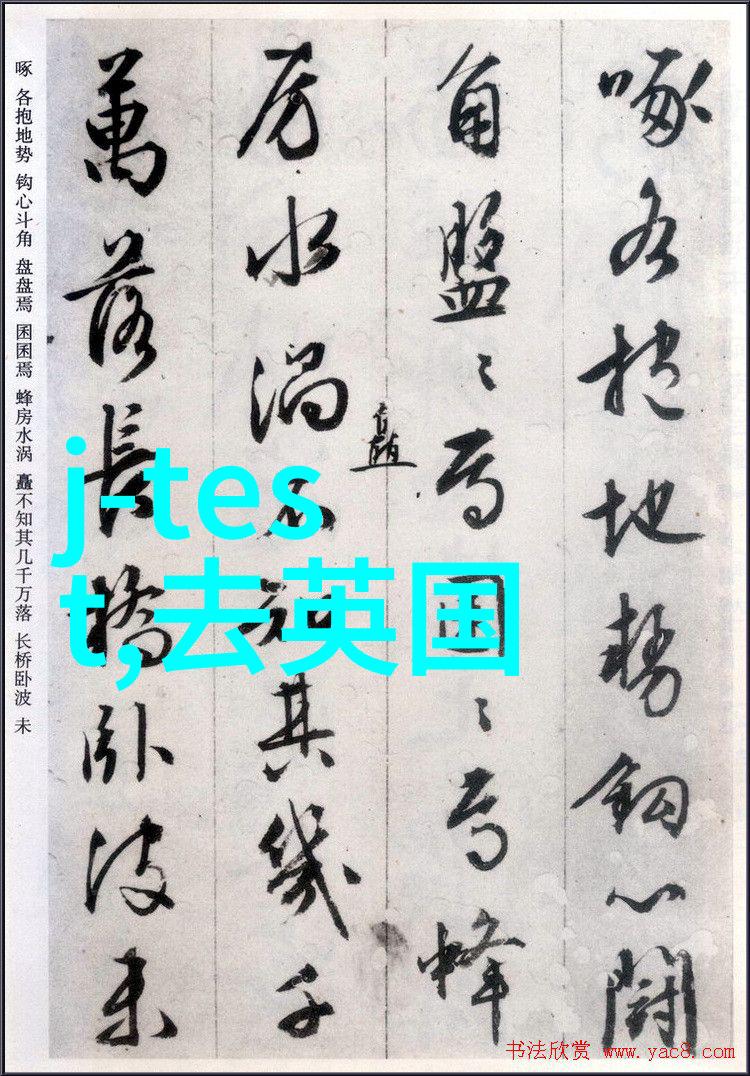 啄各抱地势钩心鬪
角盤〻焉囷〻焉蜂
房水渦矗不知其幾千
萬落長橋卧波未
啄 各抱地势 钩心斗角 盘盘焉 囷囷焉 蜂房水涡 矗不知其几千万落 长桥卧波 未
j-tes
t,去英国
书法欣赏 www.yac8.com